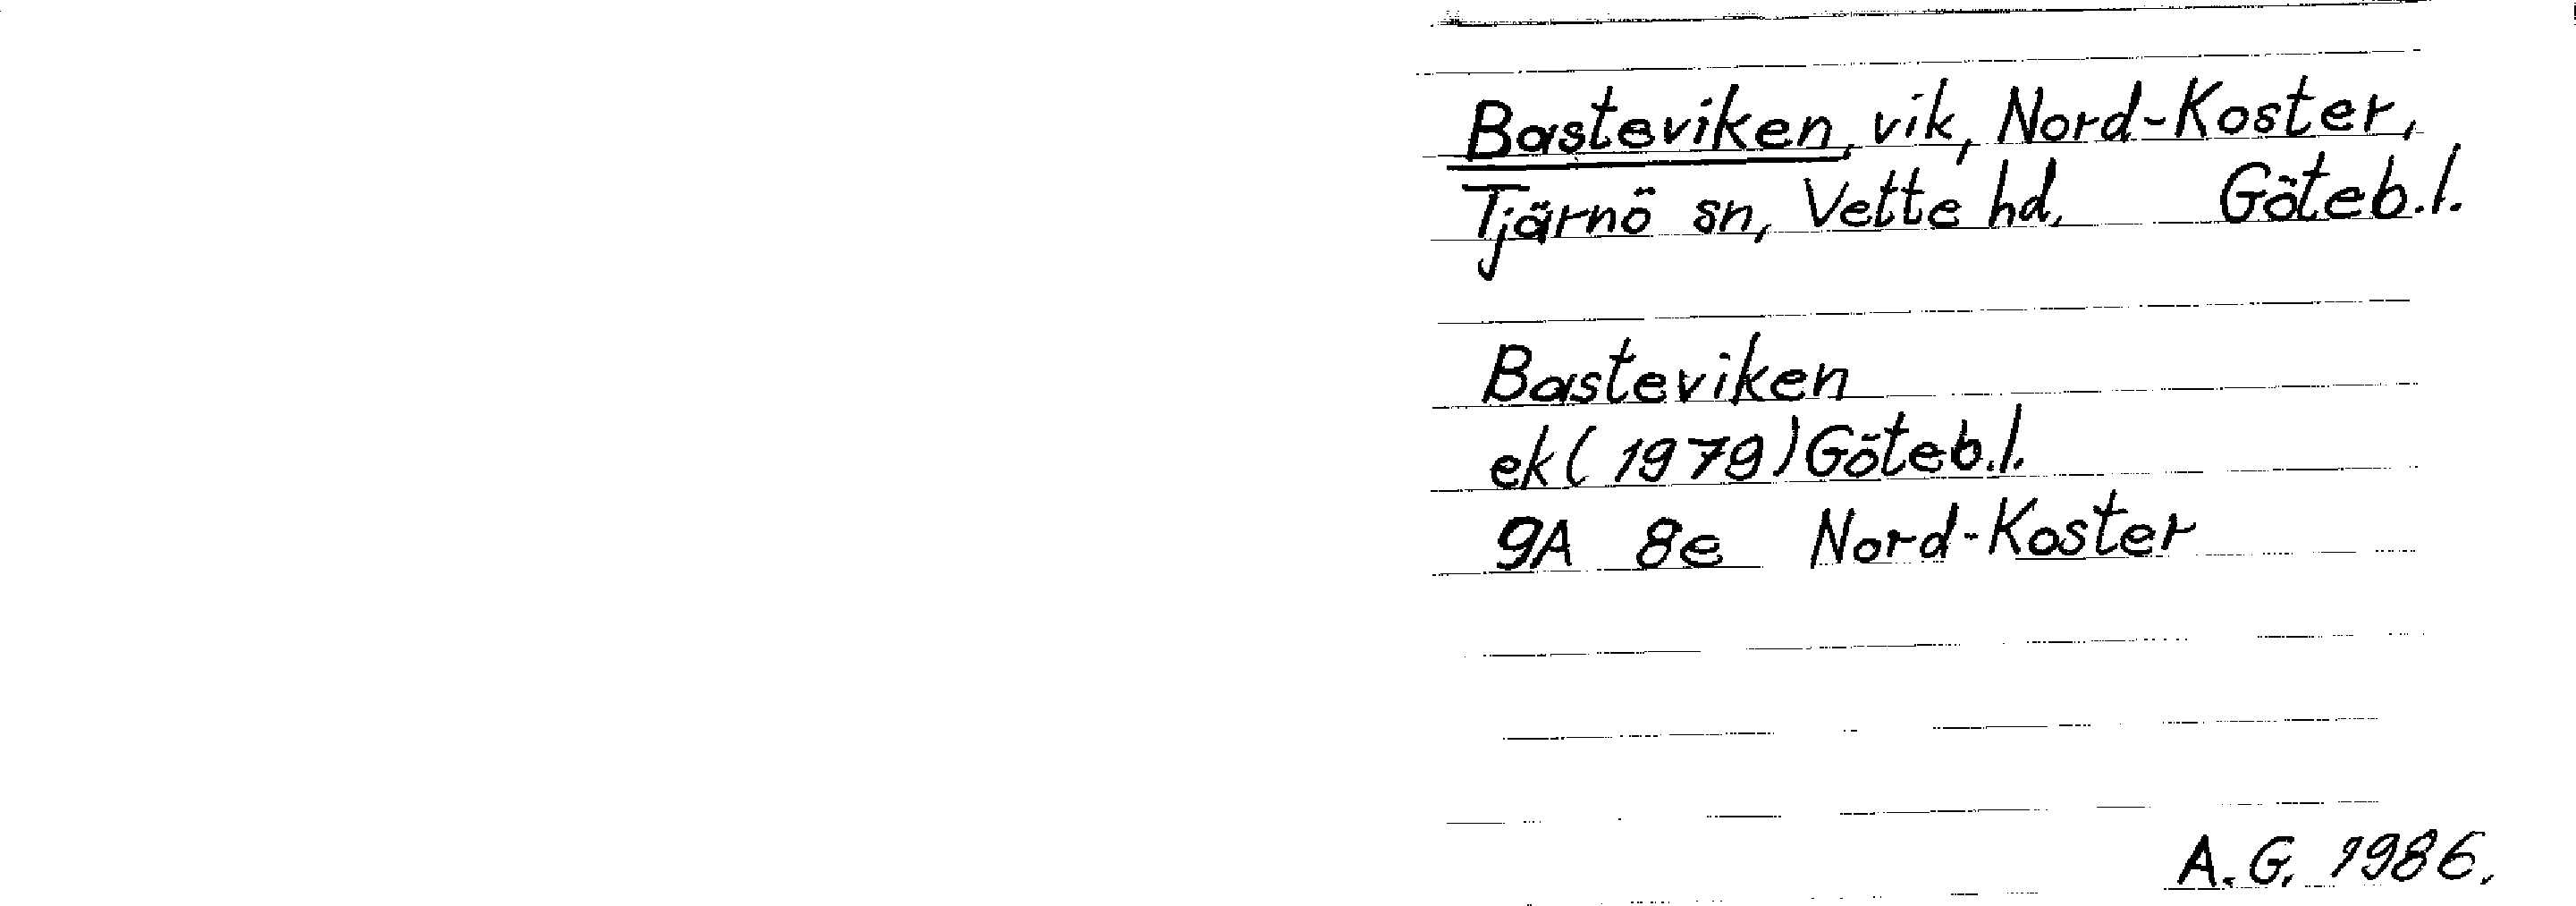 Basteviken, vik, Nord-Koster,
Tjärnö sn, Vette hd. Göteb.l.
Basteviken
ek (1979) Göteb.l.
9A 8e Nord-Koster
A.G. 1986.